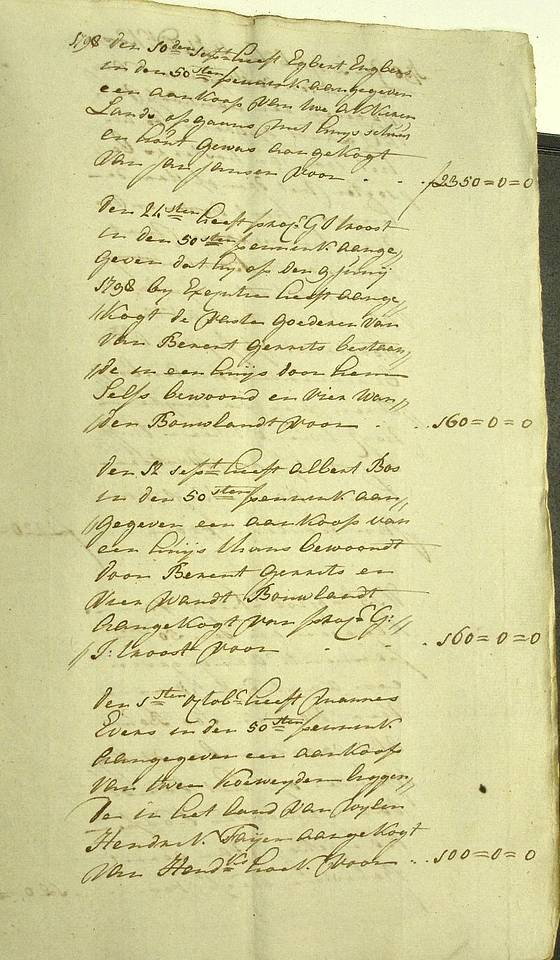 1798 den 10den sept heeft Egbert Engbers
in den 50sten pennink aangegeven
een aankoop van twe akkeren
Lands opgaans met huijs schuir
en hout gewas aangekogt
van Jan Jansen voor . . f 2350=0=0
den 24sten heeft
in den 50sten pennink aange„
geven dat hij op den 9 Junij
1798 by Executie heeft aange„
„kogt de vaste goederen van
van Berent gerrits bestaan„
„de in een huijs door hem
Selfs bewoond en vier wan„
„den Bouwlandt voor . . 160=0=0
den 12 sept heeft albert Bos
in den 50sten pennink aan„
„gegeven een aankoop van
een huijs thans bewoondt
door Berent gerrits en
vier wandt Bouwlandt
aangekogt van G:„
„J: voor . . 160=0=0
den 1sten octobr heeft Mannes
Evers in den 50sten pennink
aangegeven een aankoop
van twee Koeweyden liggen„
de in het land van wylen
Hendrik aangekogt
van Hendk voor . . 100=0=0